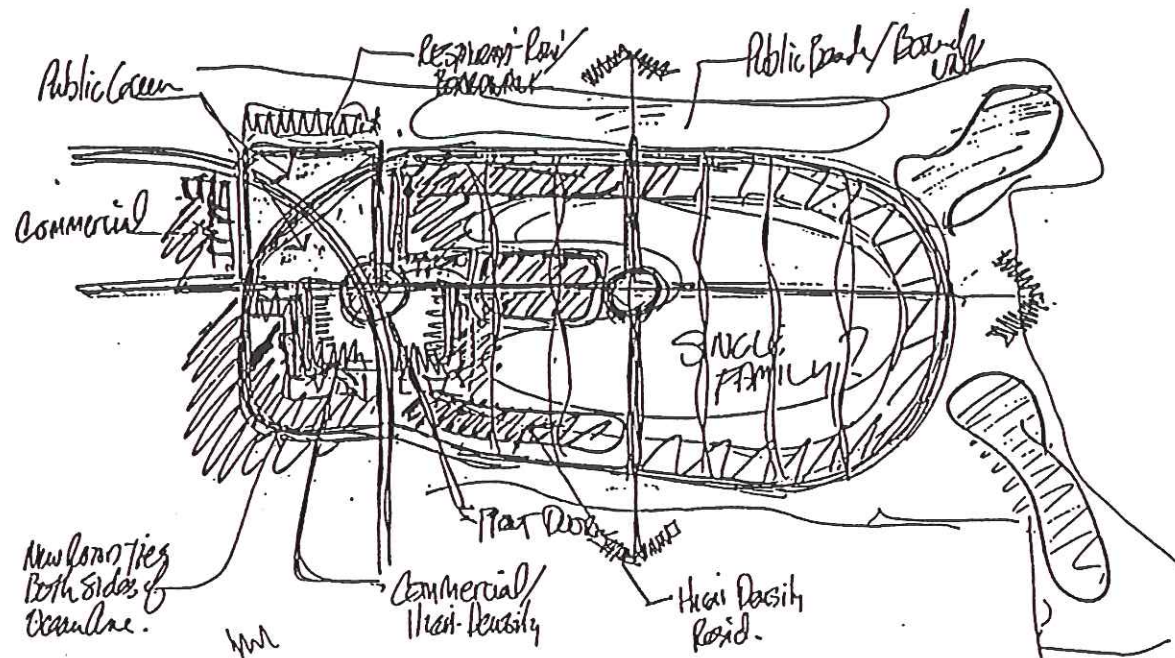 Public Green
Restaurant Row/
Boardwalk
Public Beach/Board
walk
Commercial
SINGLE
FAMILY?
Front Door
New Road Ties
Both Sides of
Ocean Ave.
Commercial/
High-Density
High Density
Resid.